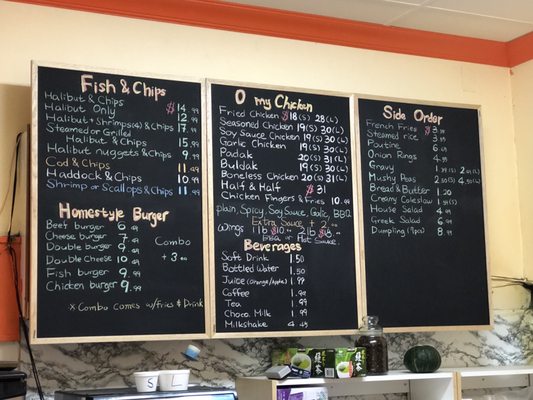 Fish & Chips
Halibut & Chips $14.99
Halibut Only 12.99
Halibut + Shrimps(4) & Chips 17.99
Steamed or Grilled
Halibut & Chips 15.99
Halibut nuggets & Chips 9.99
Cod & Chips 11.49
Haddock & Chips 10.99
Shrimp or Scallops & Chips 11.99
Homestyle Burger
Beef burger 6.99
Cheese burger 7.99
Double burger 9.49
Double Cheese 10.49
Fish burger 9.99
Chicken burger 9.99
Combo
+ 3.00
* Combo comes w/fries & Drink
O my Chicken
Fried Chicken $18(S) 28(L)
Seasoned Chicken 19(S) 30(L)
Soy Sauce Chicken 19(S) 30(L)
Garlic Chicken 19(S) 30(L)
Padak 20(S) 31(L)
Buldak 19(S) 30(L)
Boneless Chicken 20(S) 31(L)
Half & Half $31
Chicken Fingers & Fries 10.99
plain, Spicy, Soy Sauce, Galic, BBQ
Extra Sauce + 2.00
Wings 1 lb $10.00 2 lb $18
or Hot Sauce
Beverages
Soft Drink 1.50
Bottled Water 1.50
Juice (orange/apple) 1.99
Coffee 1.99
Tea 1.99
Choco. Milk 1.99
Milkshake 4.45
Side Order
French Fries $3.99
Steamed rice 3.99
Poutine 6.99
Onion Rings 4.99
Gravy 1.39(S) 2.49(L)
Mushy Peas 2.50(S) 4.50(L)
Bread & Butter 1.20
Creamy Coleslaw 1.59(S)
House Salad 4.99
Greek Salad 6.99
Dumpling (9pcs) 8.99
S L